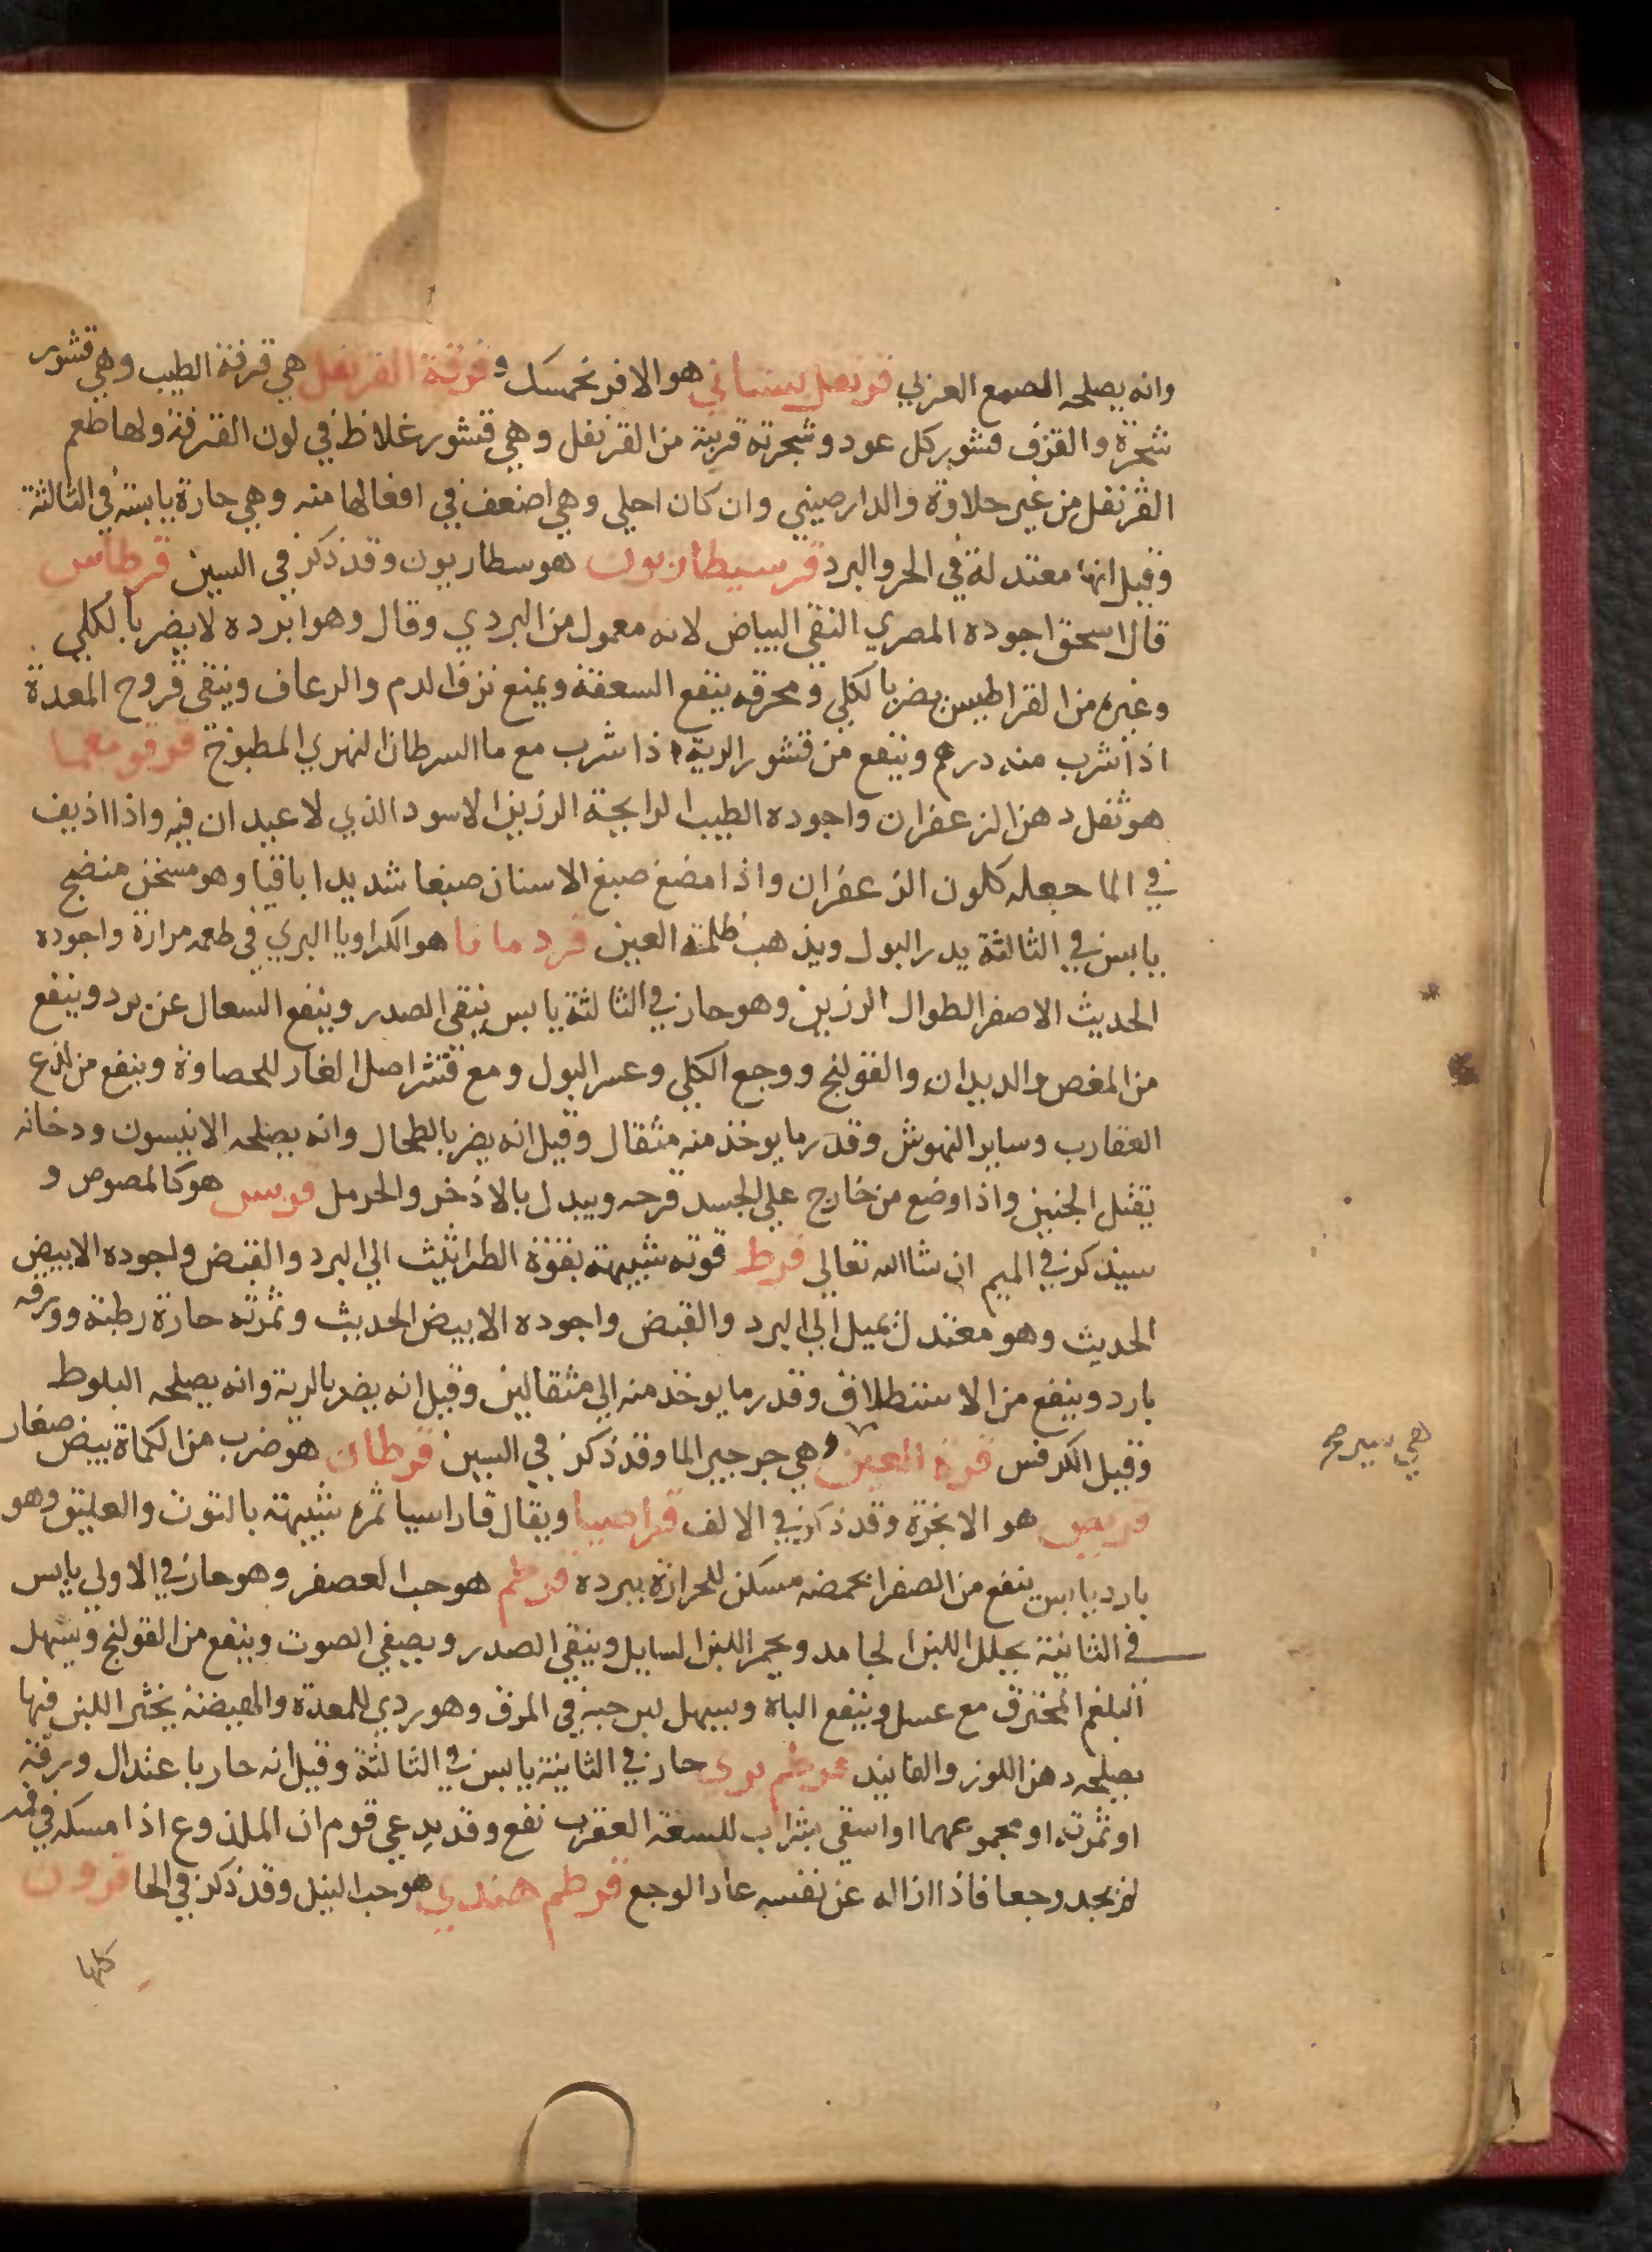 وانه يصلحه الصمع العربي قرنفل بستاني هو الافرنجمسك و قرفة القرنفل هي قرفة الطيب وهي قشور
شجرة والقرف قشور كل عود وشجرته قريبة من القرنفل وهي قشور غلاظ في لون القرفة ولها طعم
القرنفل من غير حلاوة والدارصيني وان كان احلي وهي اضعف في افعالها منه وهي حارة يابسة في الثالثة
وقيل انها معتدلة في الحر والبرد قرسيطاريون هو سطاريون وقد ذكر في السين قرطاس
قال اسحق اجوده المصري النقي البياض لانه معمول من البردي وقال وهو ابرده لا يضر بالكلي
وغيره من القراطيس يضر بالكلي ومحرقه ينفع السعفة ويمنع نزف الدم والرعاف وينقي قروح المعدة
اذا شرب منه درهم وينفع من قشور الرية اذا شرب مع ما السرطان النهري المطبوخ قرقومعما
هو ثفل دهن الزعفران واجوده الطيب الرايحة الرزين الاسود الذي لا عيدان فيه واذا اذيف
في الما جعله كلون الزعفران واذا مضغ صبغ الاسنان صبغا شديدا باقيا وهو مسخن منضج
يابس في الثالثة يدر البول ويذهب ظلمة العين قردمانا هو الكراويا البري في طعمه مرارة واجوده
الحديث الاصفر الطوال الرزين وهو حار في الثالثة يابس ينقي الصدر وينفع السعال عن برد وينفع
من المغص والديدان والقولنج ووجع الكلي وعسر البول ومع قشر اصل الغار للحصاوة وينفع من لذع
العقارب وساير النهوش وقدر ما يوخذ منه مثقال وقيل انه يضر بالطحال وانه يصلحه الانيسون ودخانه
يقتل الجنين واذا وضع من خارج علي الجسد قرحه ويبدل بالاذخر والحرمل قريس هو كالمصوص و
سيذكر في الميم ان شا الله تعالي قرط قوته شبيهة بقوة الطراثيث الي البرد والقبض واجوده الابيض
الحديث وهو معتدل يميل الي البرد والقبض واجوده الابيض الحديث وثمرته حارة رطبة وورقه
بارد وينفع من الاستطلاق وقدر ما يوخذ منه الي مثقالين وقيل انه يضر بالرية وانه يصلحه البلوط
وقيل الكرفس قرة العين وهي جرجير الما وقد ذكر في السين قرطان هو ضرب من الكماة بيض صغار
قريص هو الانجرة وقد ذكر في الالف قراصيا ويقال قاراسيا ثمره شبيهة بالتوت والعليق وهو
بارد يابس ينفع من الصفرا بحمضه مسكن للحرارة ببرده قرطم هو حب العصفر وهو حار في الاولي يابس
في الثانية يحلل اللبن الجامد ويجمد اللبن السايل وينقي الصدر ويصفي الصوت وينفع من القولنج ويسهل
البلغم المحترق مع عسل وينفع الباه ويسهل لبن حبه في المرق وهو ردي للمعدة والهيضة يخثر اللبن فيها
يصلحه دهن اللوز والفانيد قرطم بري حار في الثانية يابس في الثالثة وقيل انه حار باعتدال ورقه
او ثمرته او مجموعهما او اسقي بشراب للسعة العقرب نفع وقد يدعي قوم ان الملذوع اذا امسكه في فمه
لم يجد وجعا فاذا ازاله عن نفسه عاد الوجع قرطم هندي هو حب النيل وقد ذكر في الحا قرون
كلها
هي سير